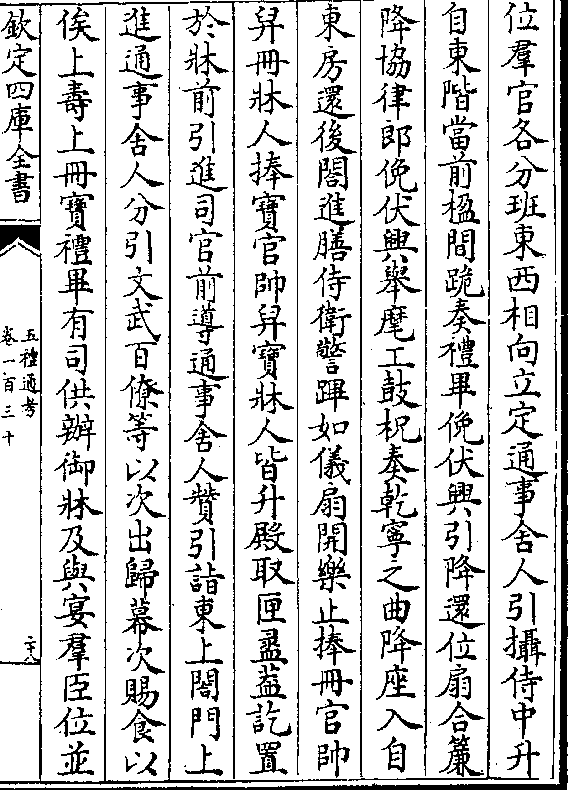 位羣官各分班東西相向立定通事舍人引攝侍中升
自東階當前楹間跪奏禮畢俛伏興引降還位扇合簾
降協律郎俛伏興舉麾工鼓柷奏乾寧之曲降座入自
東房還後閤進膳侍衛警蹕如儀扇開樂止捧冊官帥
舁冊牀人捧寶官帥舁寶牀人皆升殿取匣盝蓋訖置
於牀前引進司官前導通事舍人贊引詣東上閤門上
進通事舍人分引文武百僚等以次出歸幕次賜食以
俟上壽上冊寶禮畢有司供辦御牀及與宴羣臣位並
欽定四庫全書
五禮通考
卷一百三十
二十八